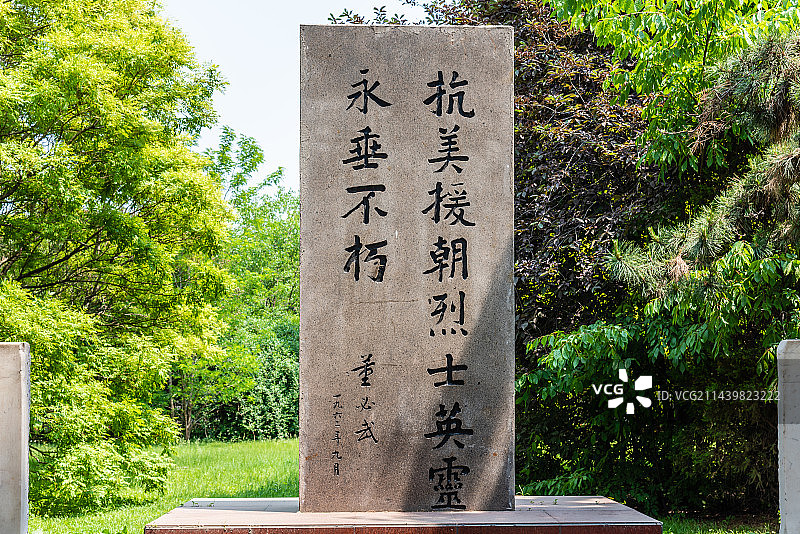 抗美援朝烈士英靈
永垂不朽
董必武
一九六二年九月
VCG VCG211439823222